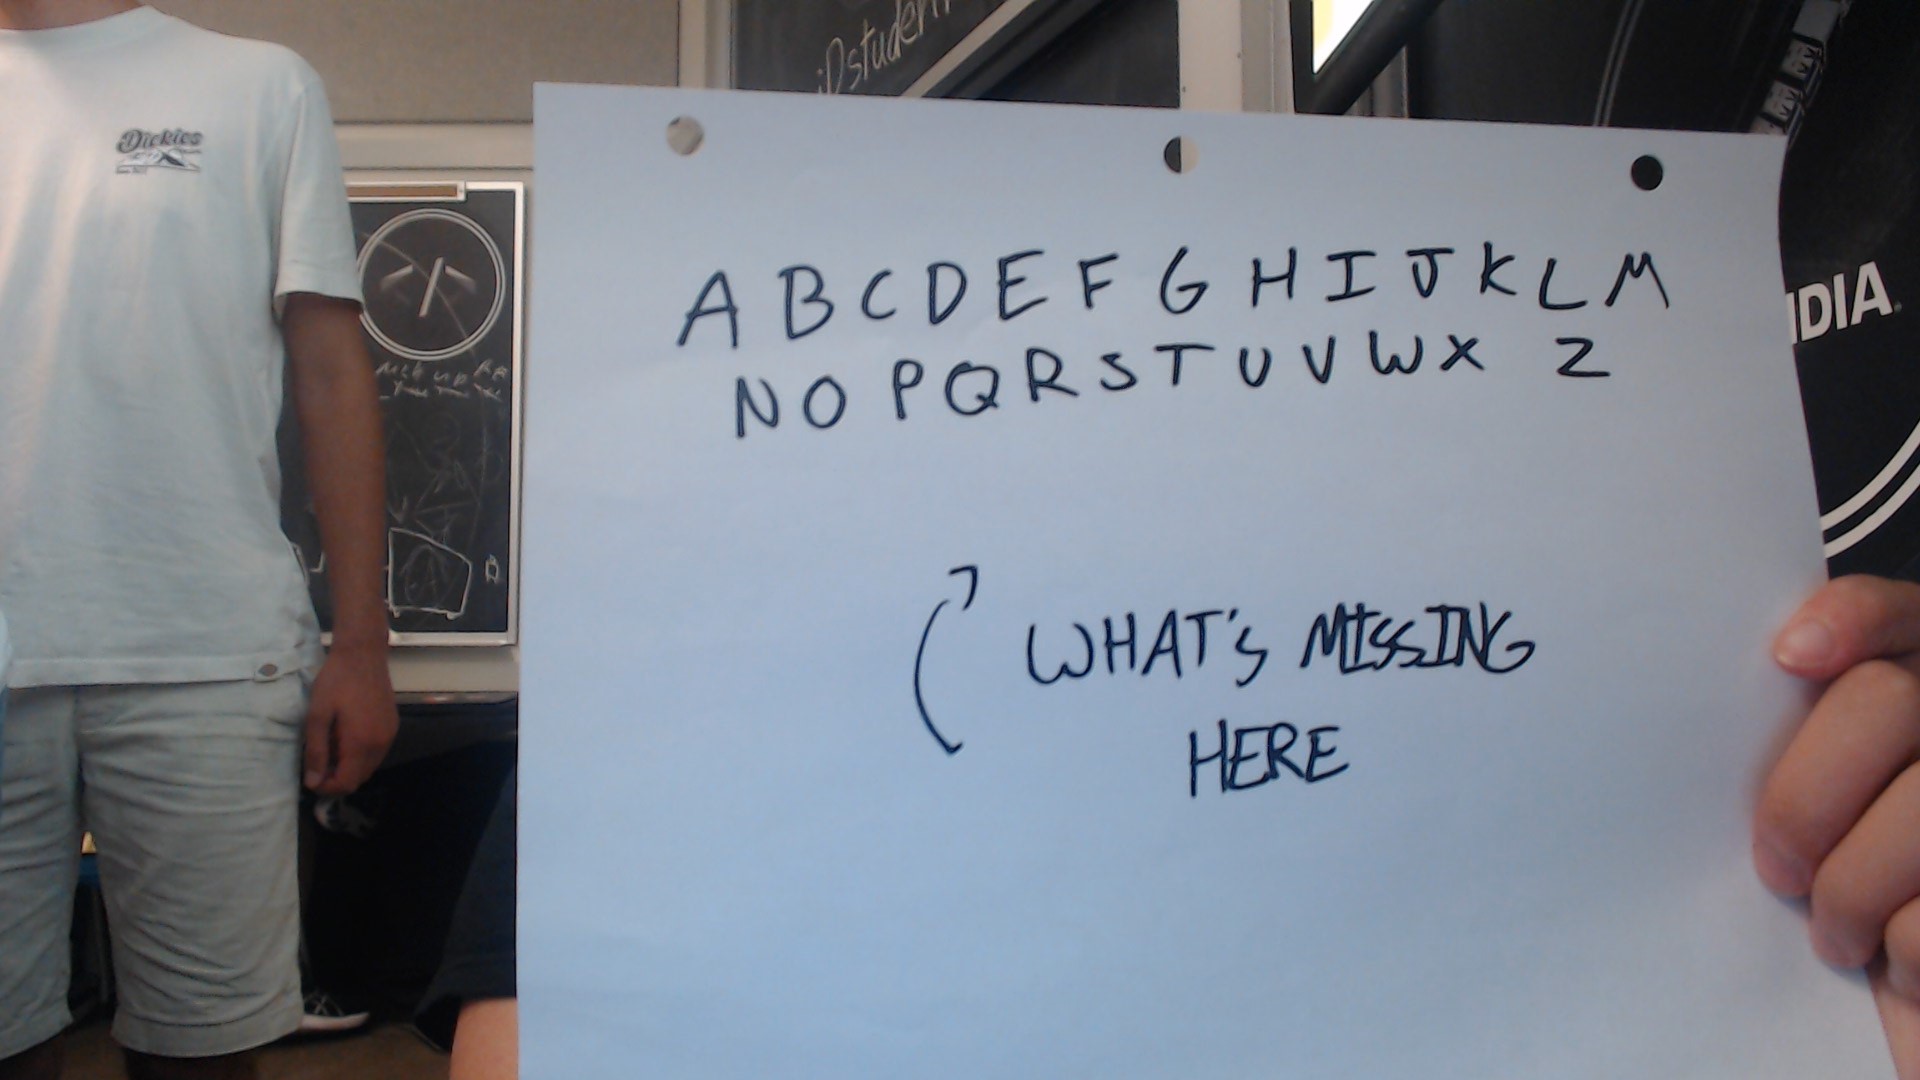 iDstuden
Dickies
IDIA
A B C D E F G H I J K L M
N O P Q R S T U V W X Z
WHAT'S MISSING
HERE